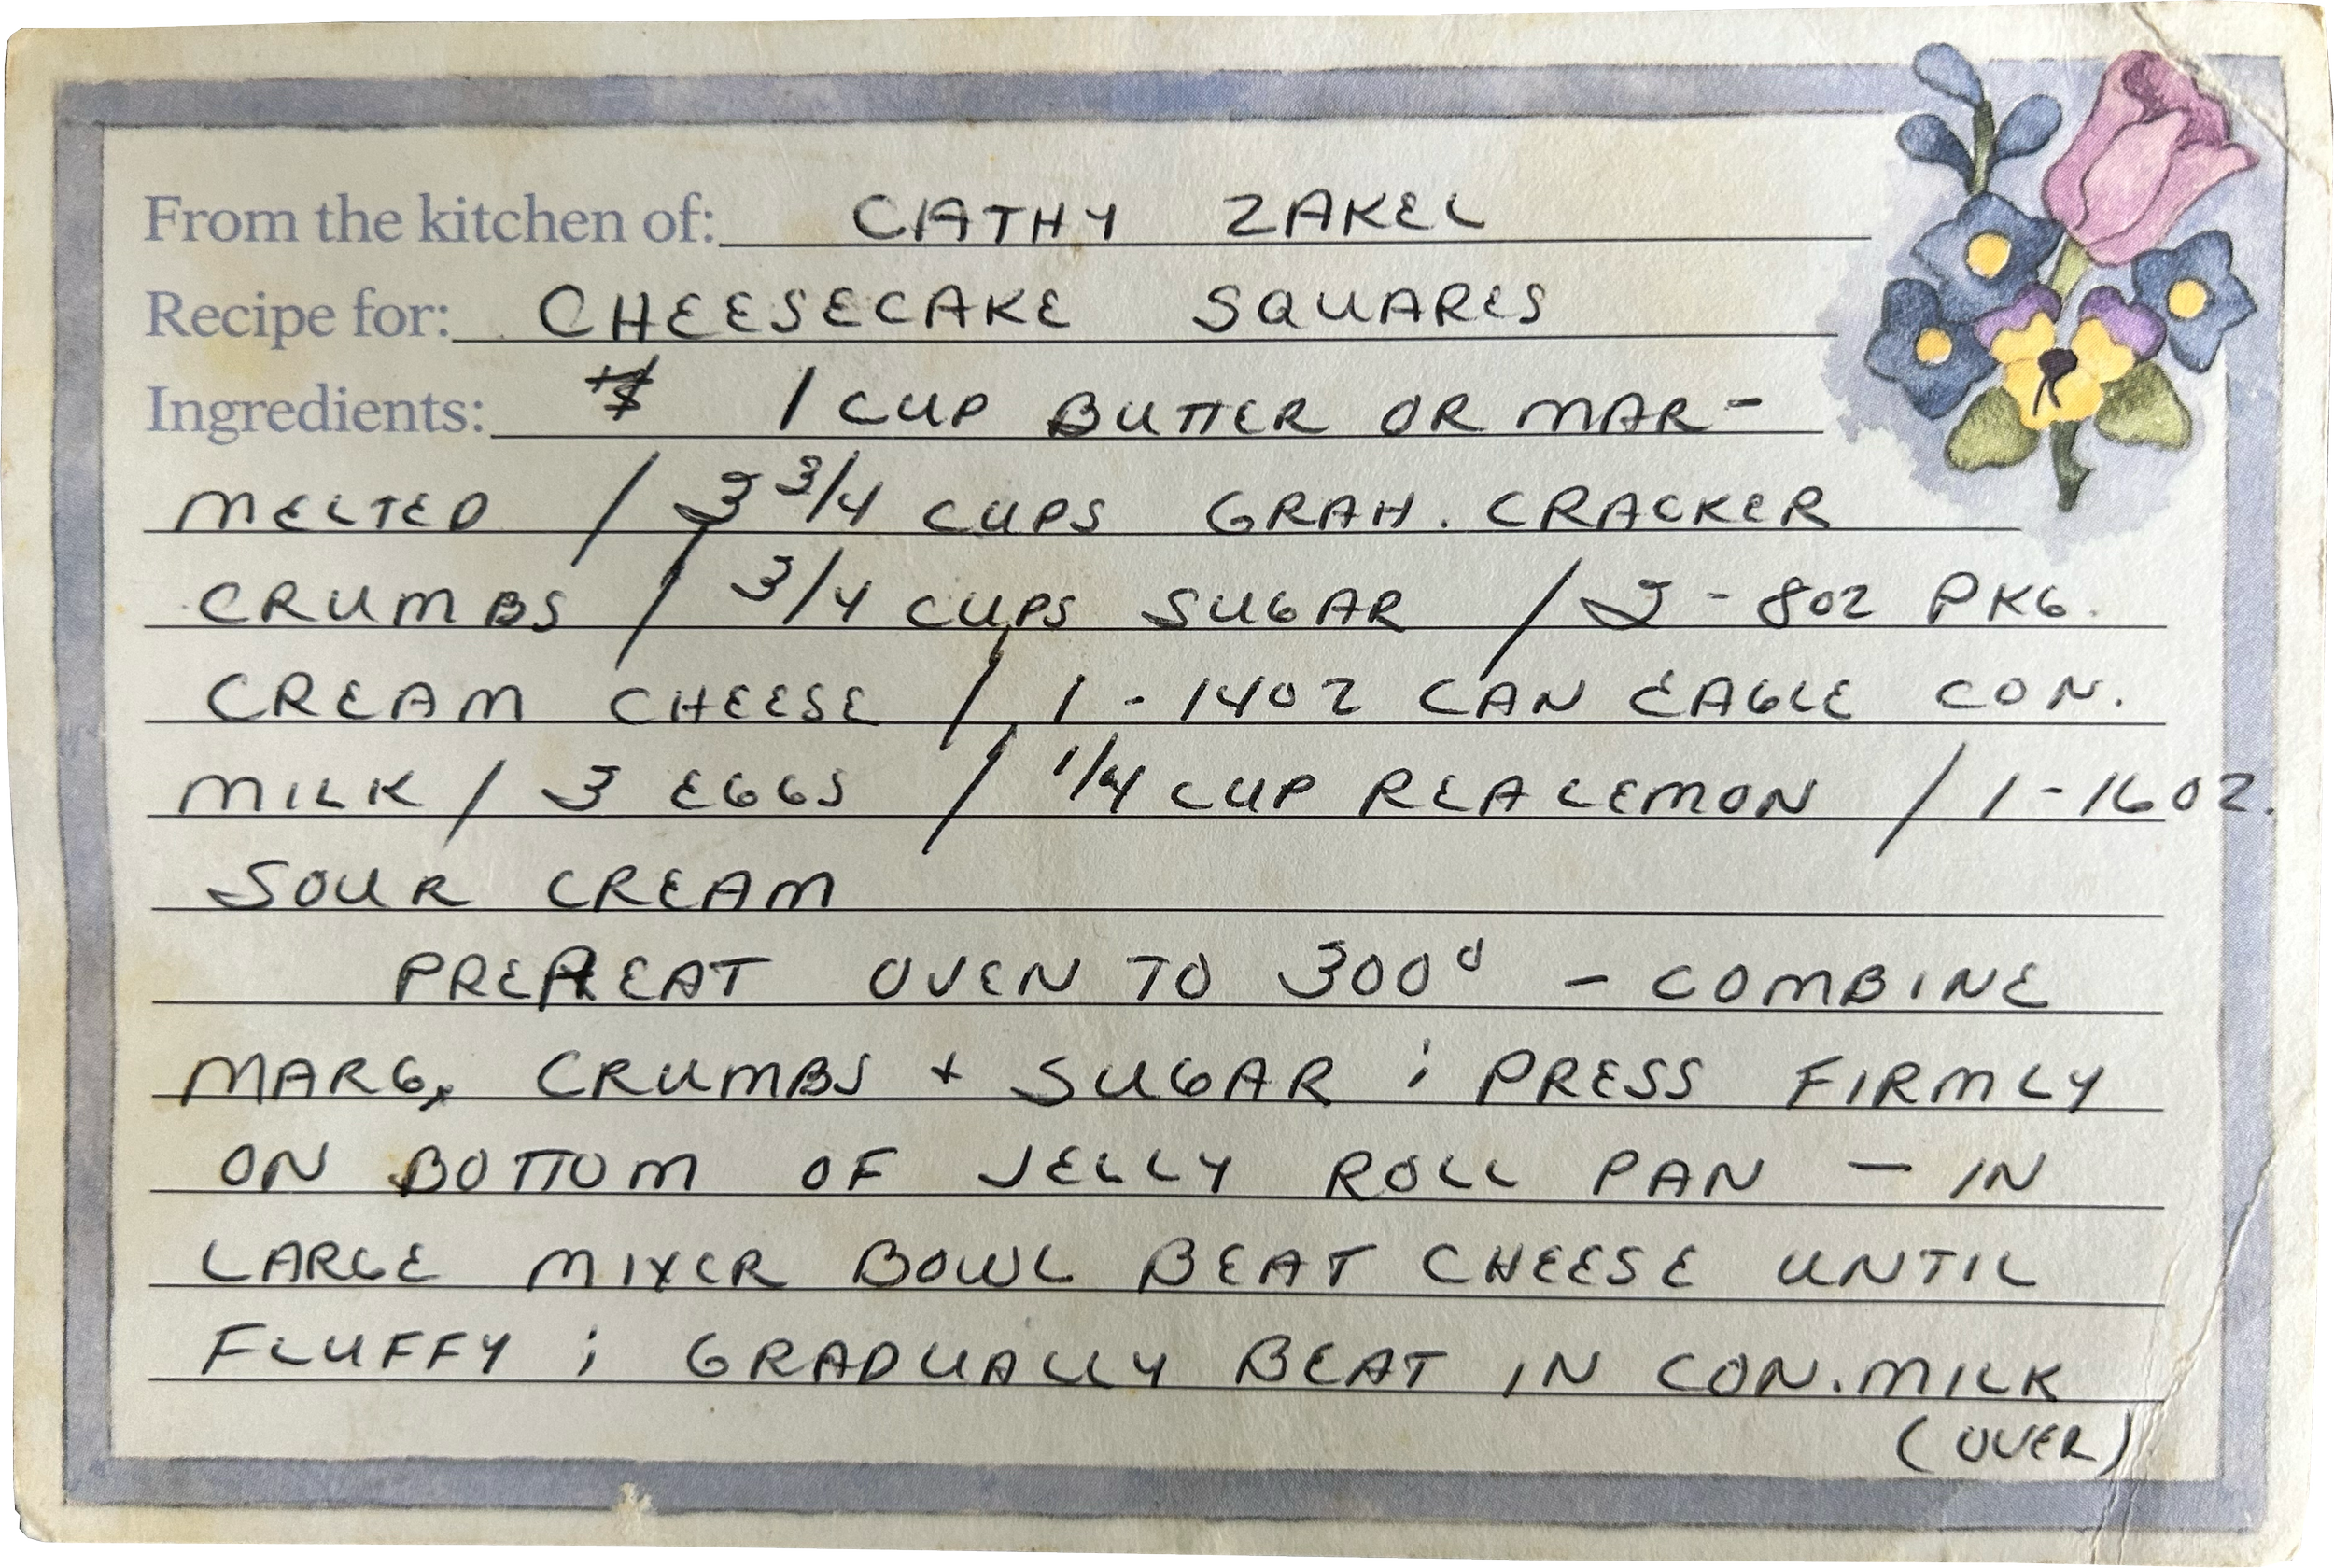 From the kitchen of: CATHY ZAKEL
Recipe for: CHEESECAKE SQUARES
Ingredients: 1 CUP BUTTER OR MAR-
MELTED / 3 3/4 CUPS GRAH. CRACKER
CRUMBS / 3/4 CUPS SUGAR / 2 - 8OZ PKG.
CREAM CHEESE / 1 - 14OZ CAN EAGLE CON.
MILK / 3 EGGS / 1/4 CUP REALEMON / 1-16OZ.
SOUR CREAM
PREHEAT OVEN TO 300° - COMBINE
MARG, CRUMBS + SUGAR ; PRESS FIRMLY
ON BOTTOM OF JELLY ROLL PAN - IN
LARGE MIXER BOWL BEAT CHEESE UNTIL
FLUFFY ; GRADUALLY BEAT IN CON. MILK
(OVER)